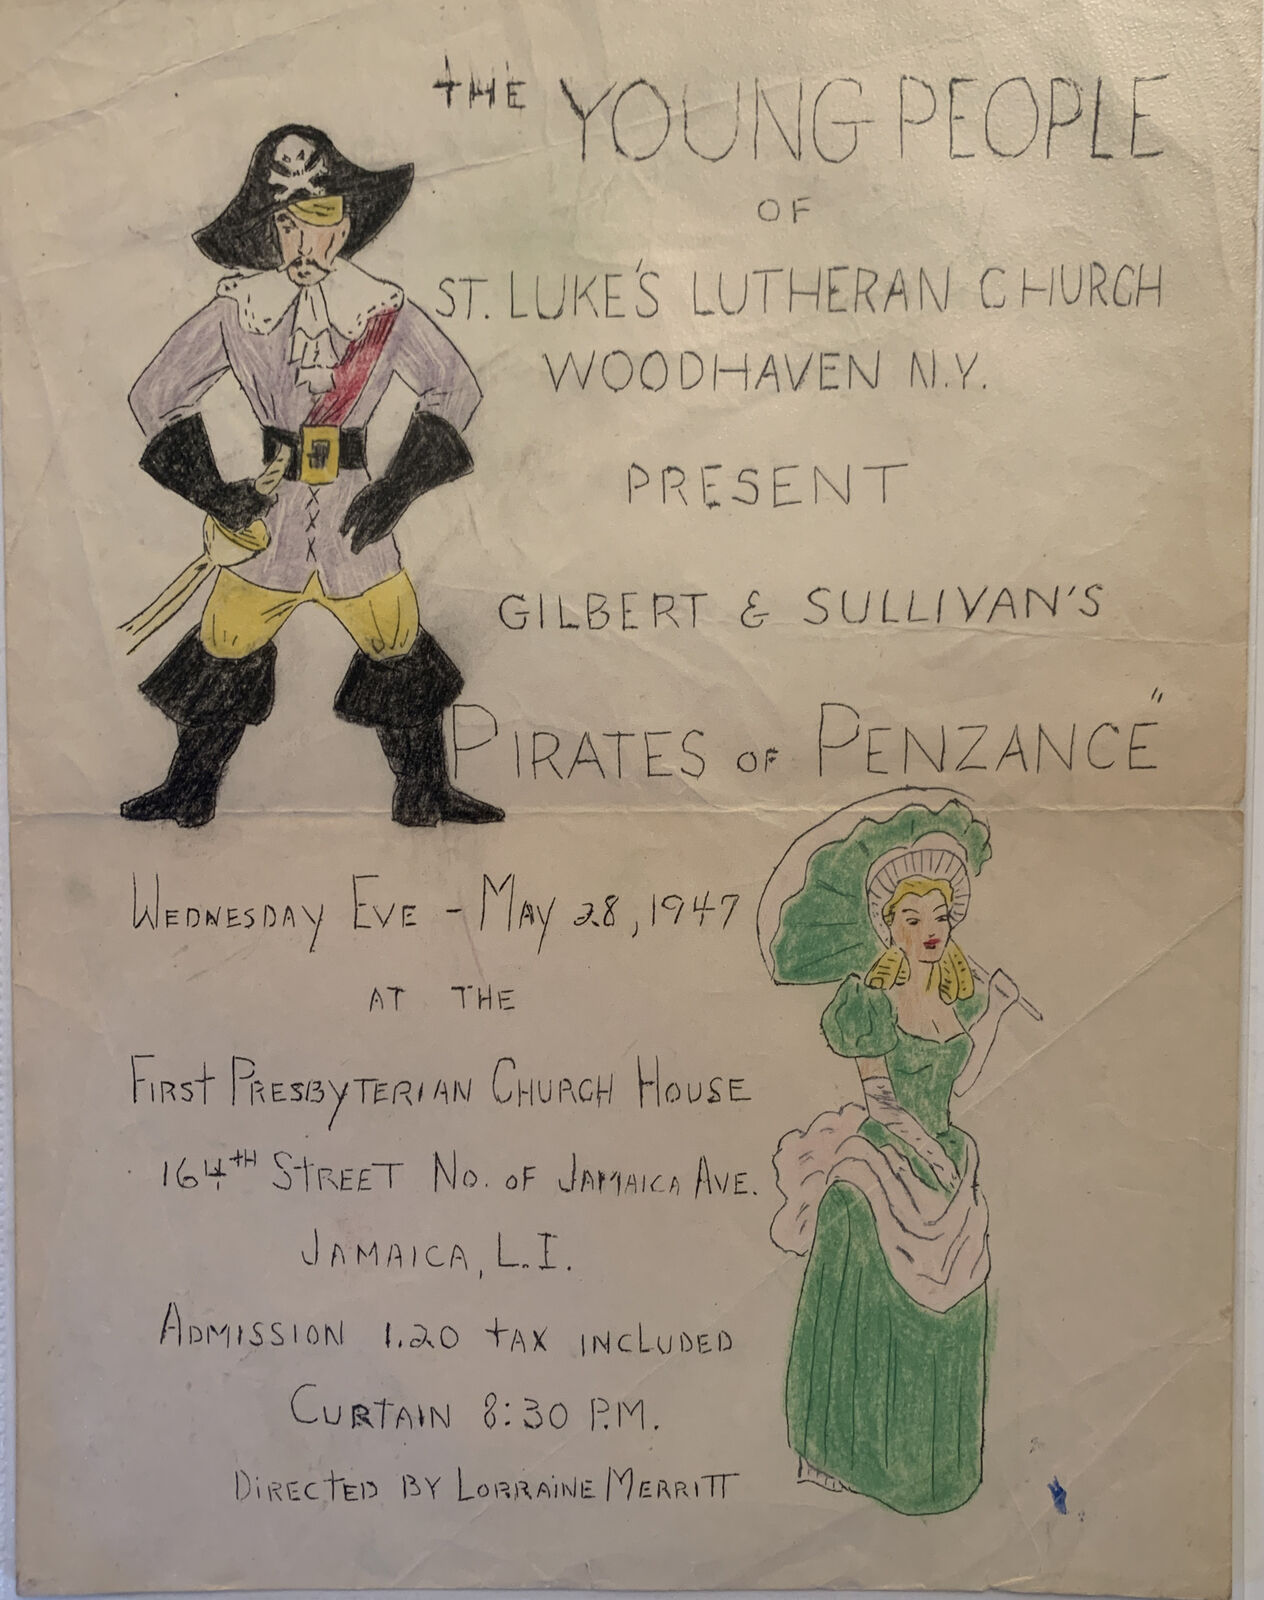 THE YOUNG PEOPLE
OF
ST. LUKE'S LUTHERAN CHURCH
WOODHAVEN N.Y.
PRESENT
GILBERT & SULLIVAN'S
PIRATES OF PENZANCE"
WEDNESDAY EVE - MAY 28, 1947
AT THE
FIRST PRESBYTERIAN CHURCH HOUSE
164TH STREET NO. OF JAMAICA AVE.
JAMAICA, L.I.
ADMISSION 1.20 TAX INCLUDED
CURTAIN 8:30 P.M.
DIRECTED BY LORRAINE MERRITT